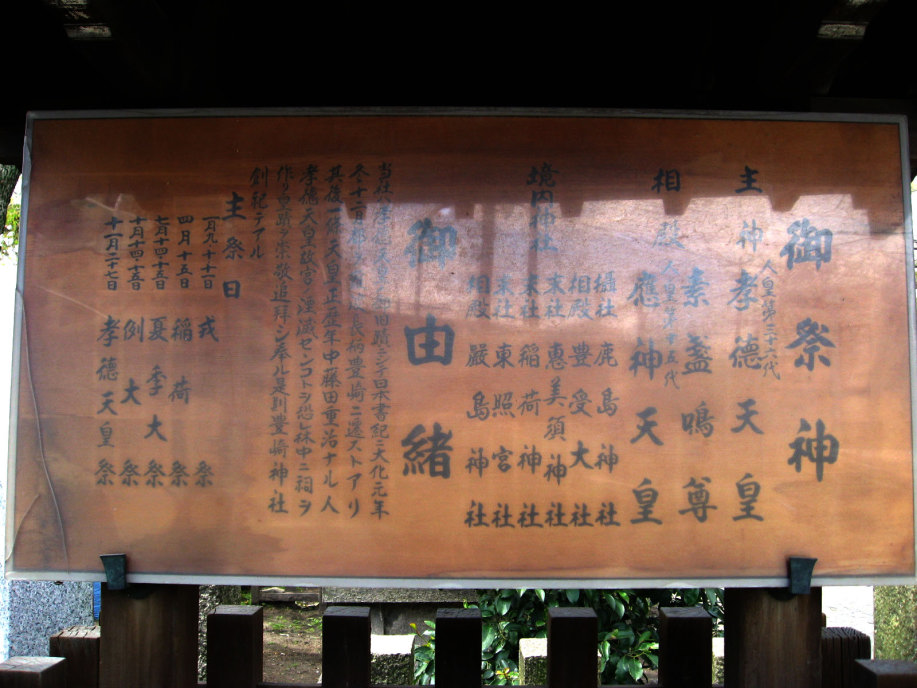 御祭神
主神 孝徳天皇
人皇第三十六代
相殿 素盞嗚尊
應神天皇
人皇第十五代
境内神社
攝社 鹿島神社
相殿 豊受大社
末社 恵美須神社
末社 稲荷神社
末社 東照宮
相殿 嚴島神社
御由緒
当社ハ孝徳天皇ノ旧蹟ニシテ日本書紀ニ大化元年
冬十二月都ヲ長柄豊崎ニ遷ストアリ
其後一條天皇正歴年中藤田重治ナル人
孝徳天皇故宮ノ湮滅センコトヲ恐レ林中ニ祠ヲ
作リ旧蹟ヲ崇敬追拜シ奉ル是則豊崎神社
創祀デアル
主祭日
一月九十十一日 戎祭
四月十五日 稲荷祭
七月十四十五日 夏季大祭
十月十四十五日 例大祭
十一月二十七日 孝徳天皇祭